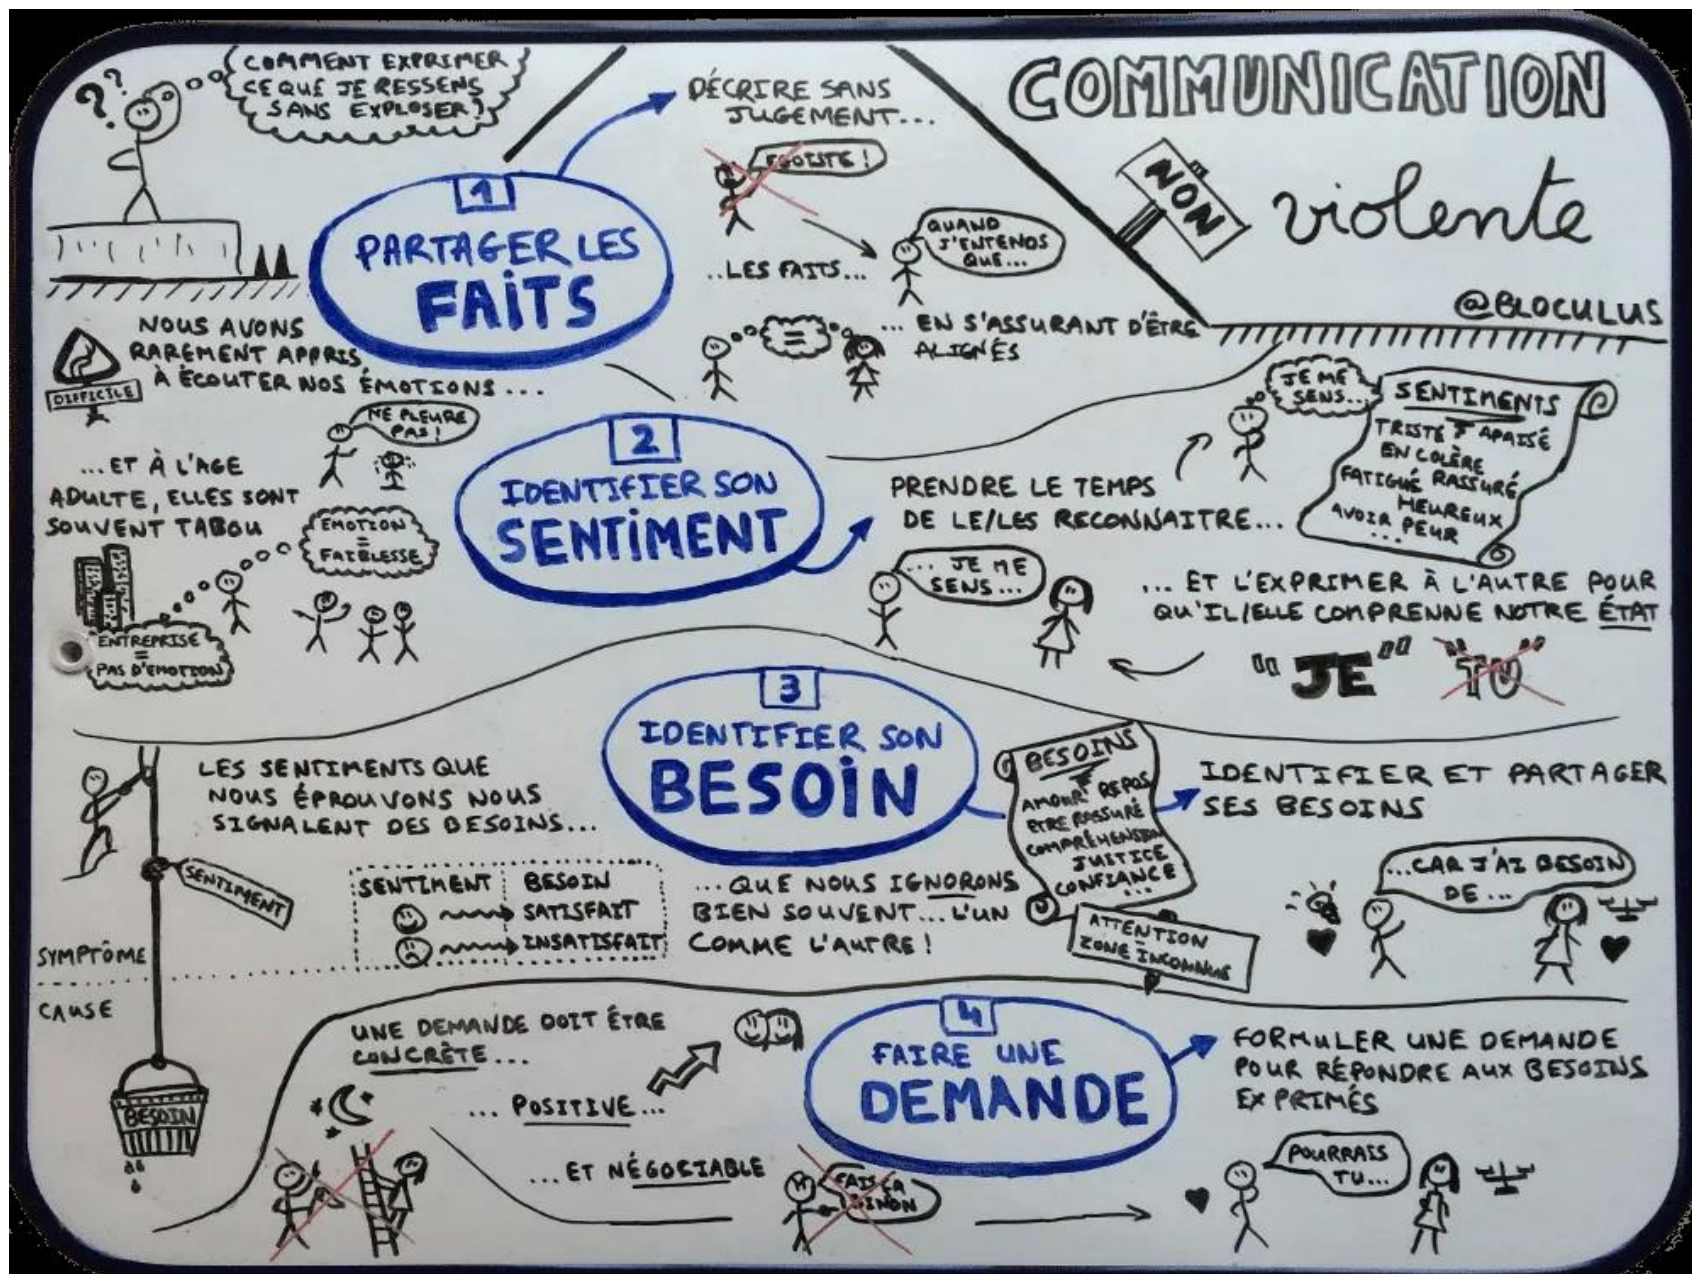 COMMENT EXPRIMER
CE QUE JE RESSENS
SANS EXPLOSER?
??
COMMUNICATION
NON
violente
@BLOCULUS
1
PARTAGER LES
FAITS
DÉCRIRE SANS
JUGEMENT...
EGOISTE !
..LES FAITS...
QUAND
J'ENTENDS
QUE...
=
... EN S'ASSURANT D'ÊTRE
ALIGNÉS
NOUS AVONS
RAREMENT APPRIS
À ÉCOUTER NOS ÉMOTIONS ...
DIFFICILE
NE PLEURE
PAS !
...ET À L'AGE
ADULTE, ELLES SONT
SOUVENT TABOU
EMOTION
=
FAIBLESSE
ENTREPRISE
=
PAS D'EMOTION
2
IDENTIFIER SON
SENTIMENT
PRENDRE LE TEMPS
DE LE/LES RECONNAITRE...
JE ME
SENS...
SENTIMENTS
TRISTE APAISÉ
EN COLÈRE
FATIGUÉ RASSURÉ
HEUREUX
AVOIR PEUR
...
... JE ME
SENS...
... ET L'EXPRIMER À L'AUTRE POUR
QU'IL/ELLE COMPRENNE NOTRE ÉTAT
"JE" "TU"
3
IDENTIFIER SON
BESOIN
LES SENTIMENTS QUE
NOUS ÉPROUVONS NOUS
SIGNALENT DES BESOINS...
SENTIMENT
SENTIMENT BESOIN
SATISFAIT
INSATISFAIT
...QUE NOUS IGNORONS
BIEN SOUVENT... L'UN
COMME L'AUTRE !
BESOINS
AMOUR REPOS
ETRE RASSURÉ
COMPRÉHENSION
JUSTICE
CONFIANCE
...
ATTENTION
ZONE INCONNUE
IDENTIFIER ET PARTAGER
SES BESOINS
...CAR J'AI BESOIN
DE...
SYMPTÔME
CAUSE
BESOIN
4
FAIRE UNE
DEMANDE
UNE DEMANDE DOIT ÊTRE
CONCRÈTE...
... POSITIVE...
...ET NÉGOCIABLE
FAIS ÇA
SINON
FORMULER UNE DEMANDE
POUR RÉPONDRE AUX BESOINS
EXPRIMÉS
POURRAIS
TU...